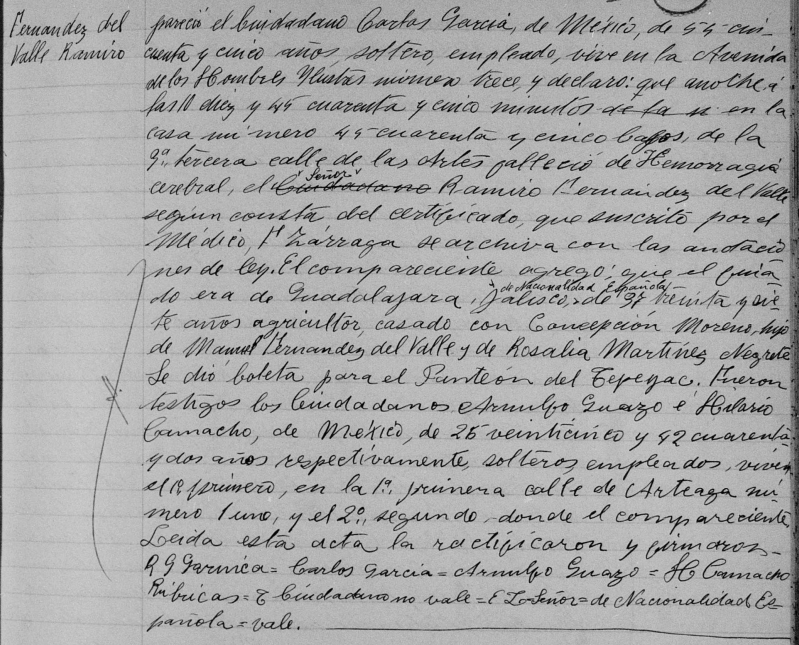 Fernandez del
Valle Ramiro
pareció el Ciudadano Carlos Garcia, de México, de 55 cin
cuenta y cinco años, soltero, empleado, vive en la Avenida
de los Hombres Ilustres número trece, y declaró: que anoche, á
las 10 diez y 45 cuarenta y cinco minutos de la n en la
casa número 45 cuarenta y cinco bajos, de la
3ª tercera calle de las Artes falleció de Hemorragia
cerebral, el Ciudadano Señor Ramiro Fernandez del Valle
según consta del certificado, que suscrito por el
Médico, F Zárraga se archiva con las anotacio
nes de ley. El compareciente agregó: que el fina
do era de Guadalajara, Jalisco, de Nacionalidad Española, de 37 treinta y sie
te años agricultor, casado con Concepción Moreno, hijo
de Manuel Fernandez del Valle y de Rosalia Martínez Negrete
Se dió boleta para el Panteón del Tepeyac. Fueron
testigos los Ciudadanos Arnulfo Guazo é Hilario
Camacho, de México, de 25 veinticinco y 42 cuarenta
y dos años respectivamente, solteros empleados, viven
el 1º primero, en la 1ª primera calle de Arteaga nú
mero 1 uno, y el 2º segundo donde el compareciente
Leida esta acta la ractificaron y firmaron–
R G Garnica = Carlos Garcia = Arnulfo Guazo = H Camacho
Rúbricas = T Ciudadano no vale = E L Señor = de Nacionalidad Es
pañola = vale.